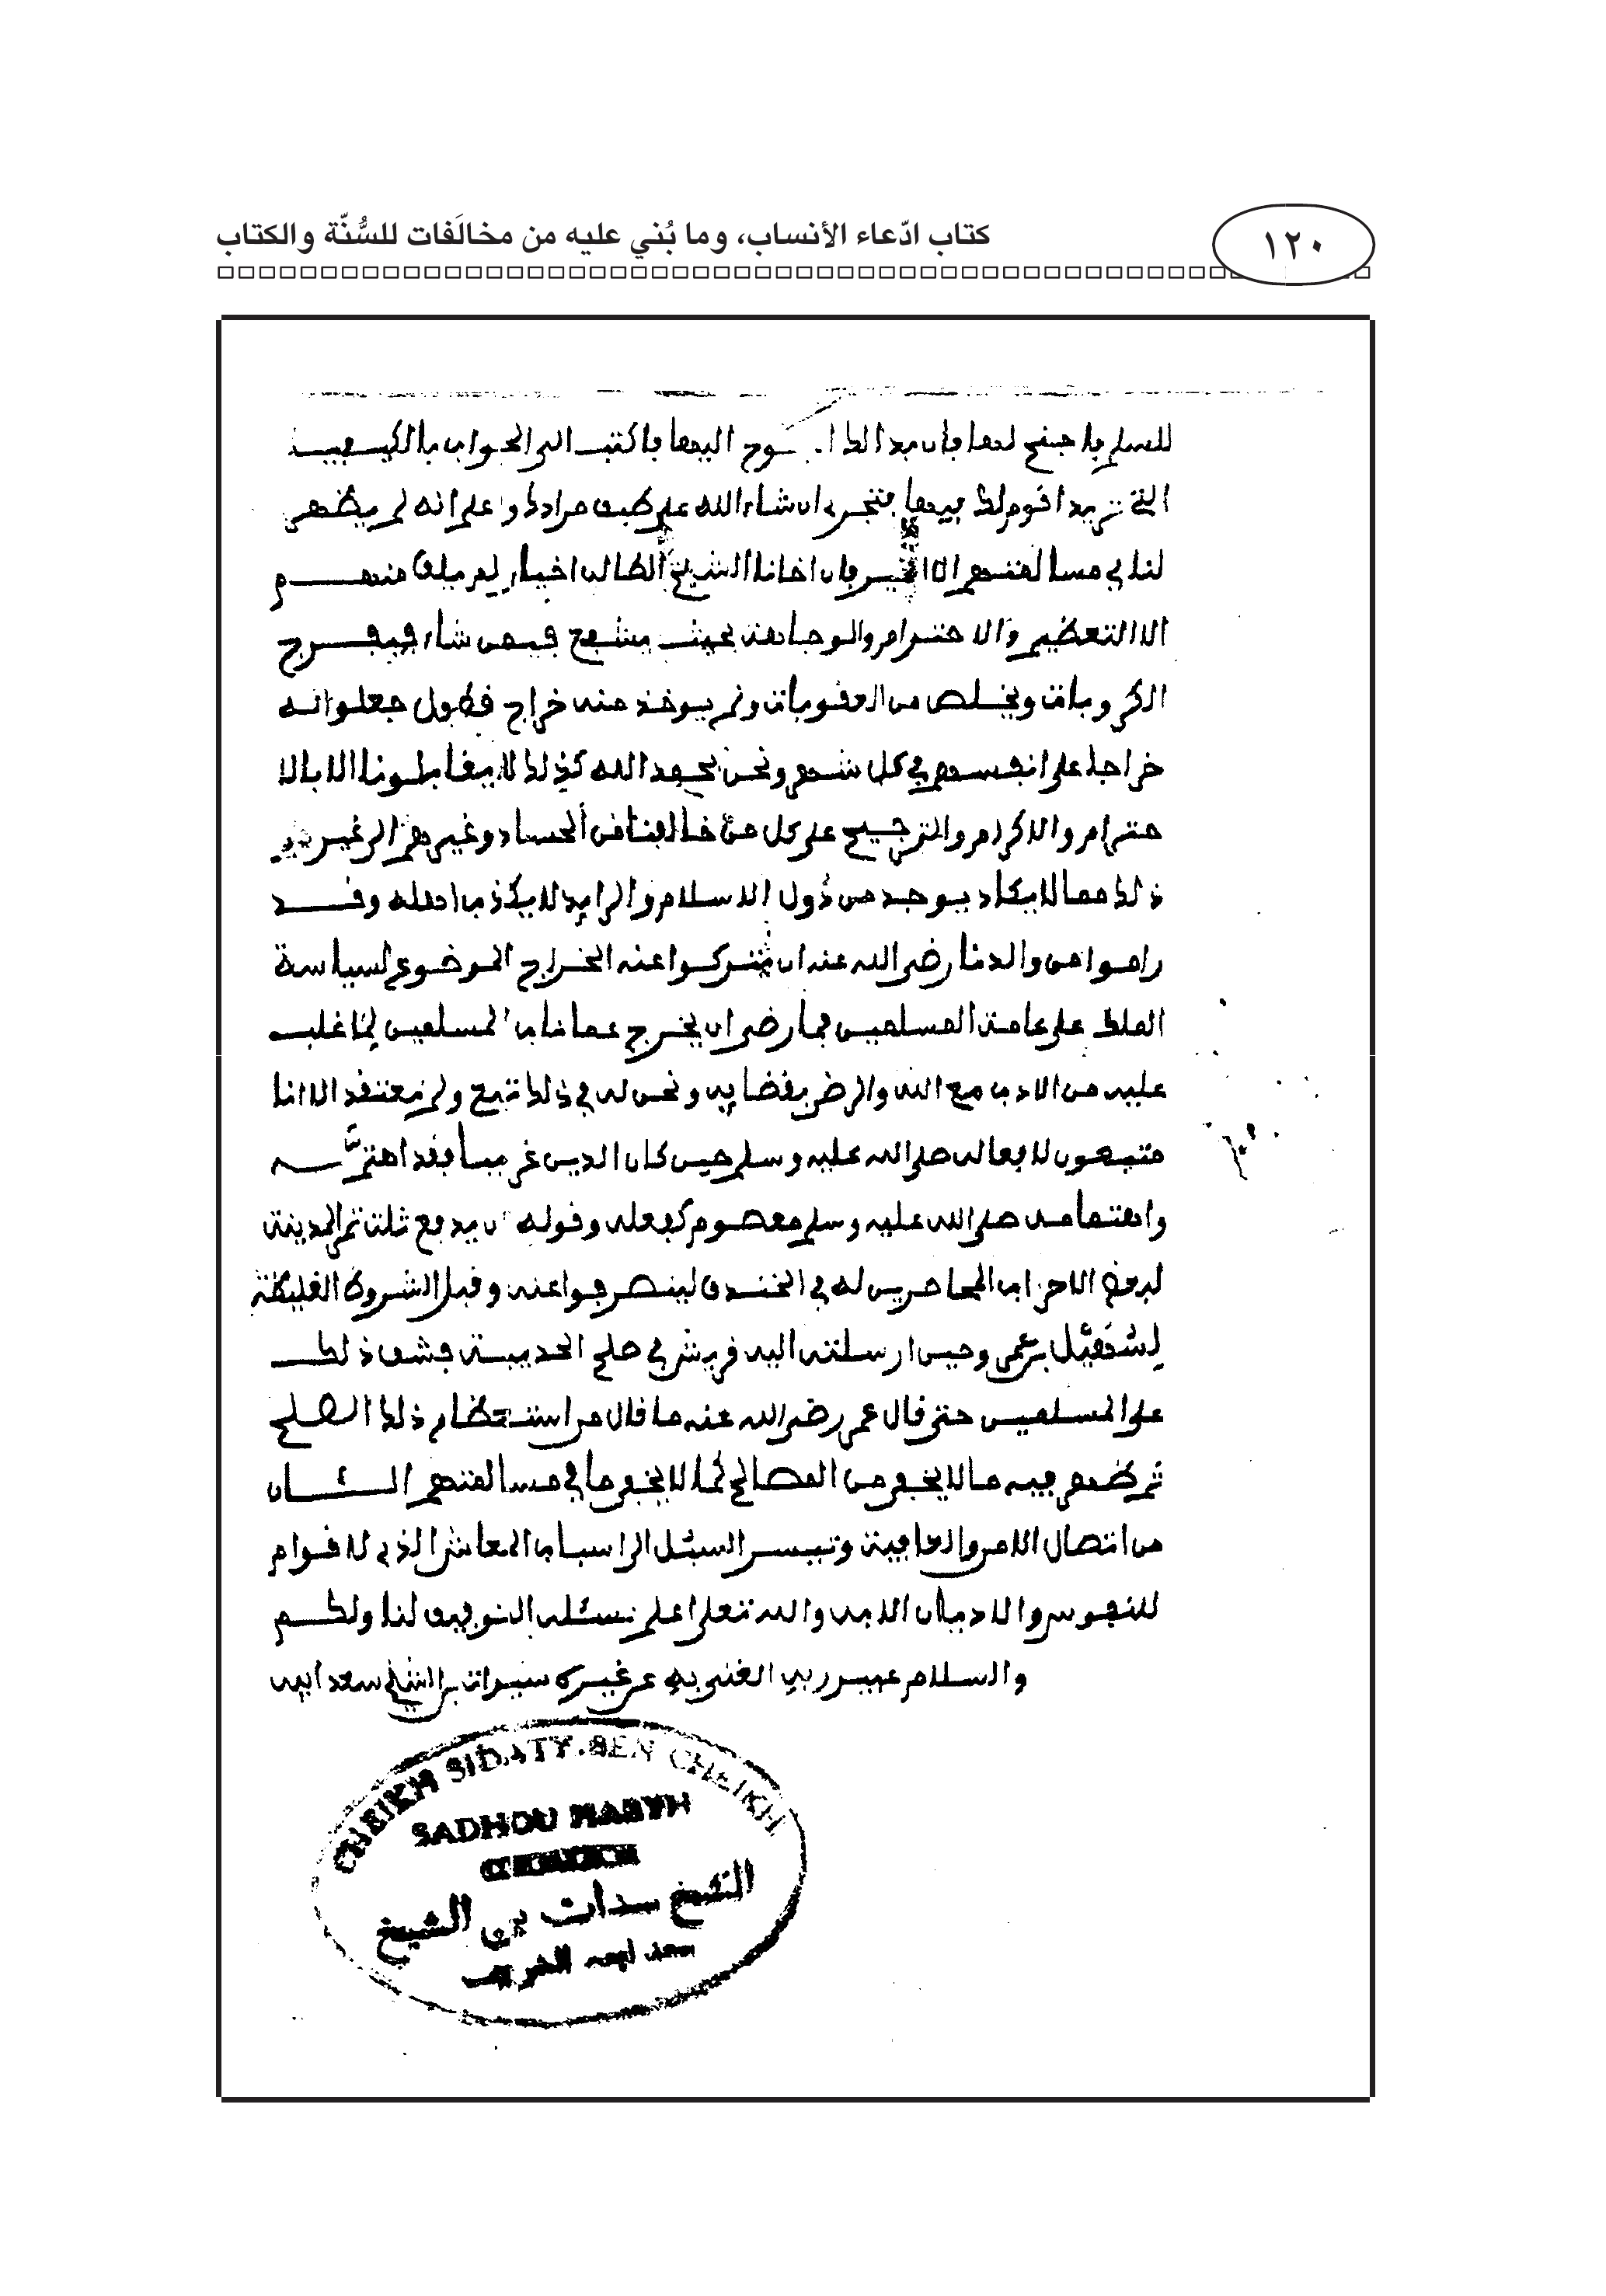 كتاب ادّعاء الأنساب، وما بُني عليه من مخالَفات للسُّنّة والكتاب
١٢٠
للسلم فاجنح لها فان بدا لك الجنوح اليها فاكتب الى الجواب بالكيفية
التي تريد اقوم لك بيها فتجرى ان شاء الله على طبق مرادك واعلم انه لم يظهر
لنا في مسالمتهم الا الخير فان اخانا الشيخ الطالب اخيار لم يلق منهم
الا التعظيم والاحترام والوجاهة بحيث يشفع فيمن شاء فيفرج
الكروبات ويخلص من العقوبات ولم يوخذ منه خراج فط ول جعلوا له
خراجا على انفسهم في كل شهر ونحن بحمد الله كذلك لا يقابلوننا الا بالا
حترام والاكرام والترجيح على كل من خالفنا من الحساد وغيرهم الى غير
ذلك مما لا يكاد يوجد من ذول الاسلام والرايد لا يكذب اهله وقد
راموا من والدنا رضى الله عنه ان يتركوا عنه الخراج الموضوع لسياسة
الملك على عامة المسلمين فما رضى ان يخرج عما ناب المسلمين لما غلب
عليه من الادب مع الله والرضى بقضايه ونحن له في ذلك تبع ولم نعتقد الا انا
متبعون لافعاله صلى الله عليه وسلم حين كان الدين غريبا فقد اهتم
واهتمامه صلى الله عليه وسلم معصوم كفعله وقوله ان يدفع ثلث تمر المدينة
لبعض الاحزاب المحاصرين له في الخندق لينصرفوا عنه وقبل الشروط الغليظة
لسهيل بن عمرو حين ارسلته اليه قريش في صلح الحديبية فشق ذلك
على المسلمين حتى قال عمر رضى الله عنه ما قال من استعظام ذلك الصلح
ثم ظهر فيه ما لا يخفى من المصالح كما لا يخفى ما في مسالمتهم الئان
من اتصال الامر والعافية وتيسر السبل الى اسباب المعاش الذي لا قوام
للنفوس والاديان الا به والله تعلى اعلم نسئله التوفيق لنا ولكم
والسلام عبير ربه الغنى به عن غيره سيدات بن الشيخ سعد ابيه
CHEIKH SIDATY BEN CHEIKH
SADHOU MABYH
الشيخ سدات بن الشيخ
سعد ابيه الشريف